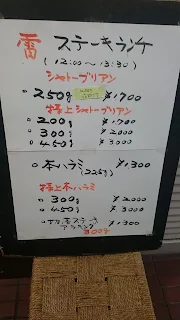 雷 ステーキランチ
(12:00〜13:30)
シャトーブリアン
○ 250g ¥1,700
特上シャトーブリアン
○ 200g ¥1,700
○ 300g ¥2,000
○ 450g ¥3,000
○ 本ハラミ ¥1,300
(225g)
特上本ハラミ
○ 300g ¥2,000
○ 450g ¥3,000
ステーキ ¥1,300
300g